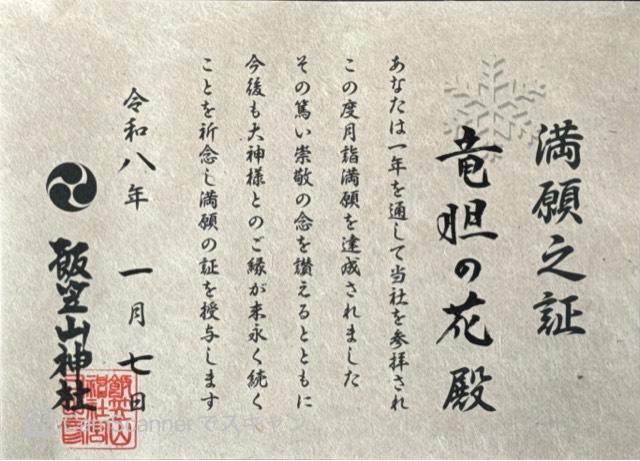 満願之証
竜胆の花殿
あなたは一年を通して当社を参拝され
この度月詣満願を達成されました
その篤い崇敬の念を讃えるとともに
今後も大神様とのご縁が末永く続く
ことを祈念し満願の証を授与します
令和八年 一月 七日
飯笠山神社
CamScanner でスキャ